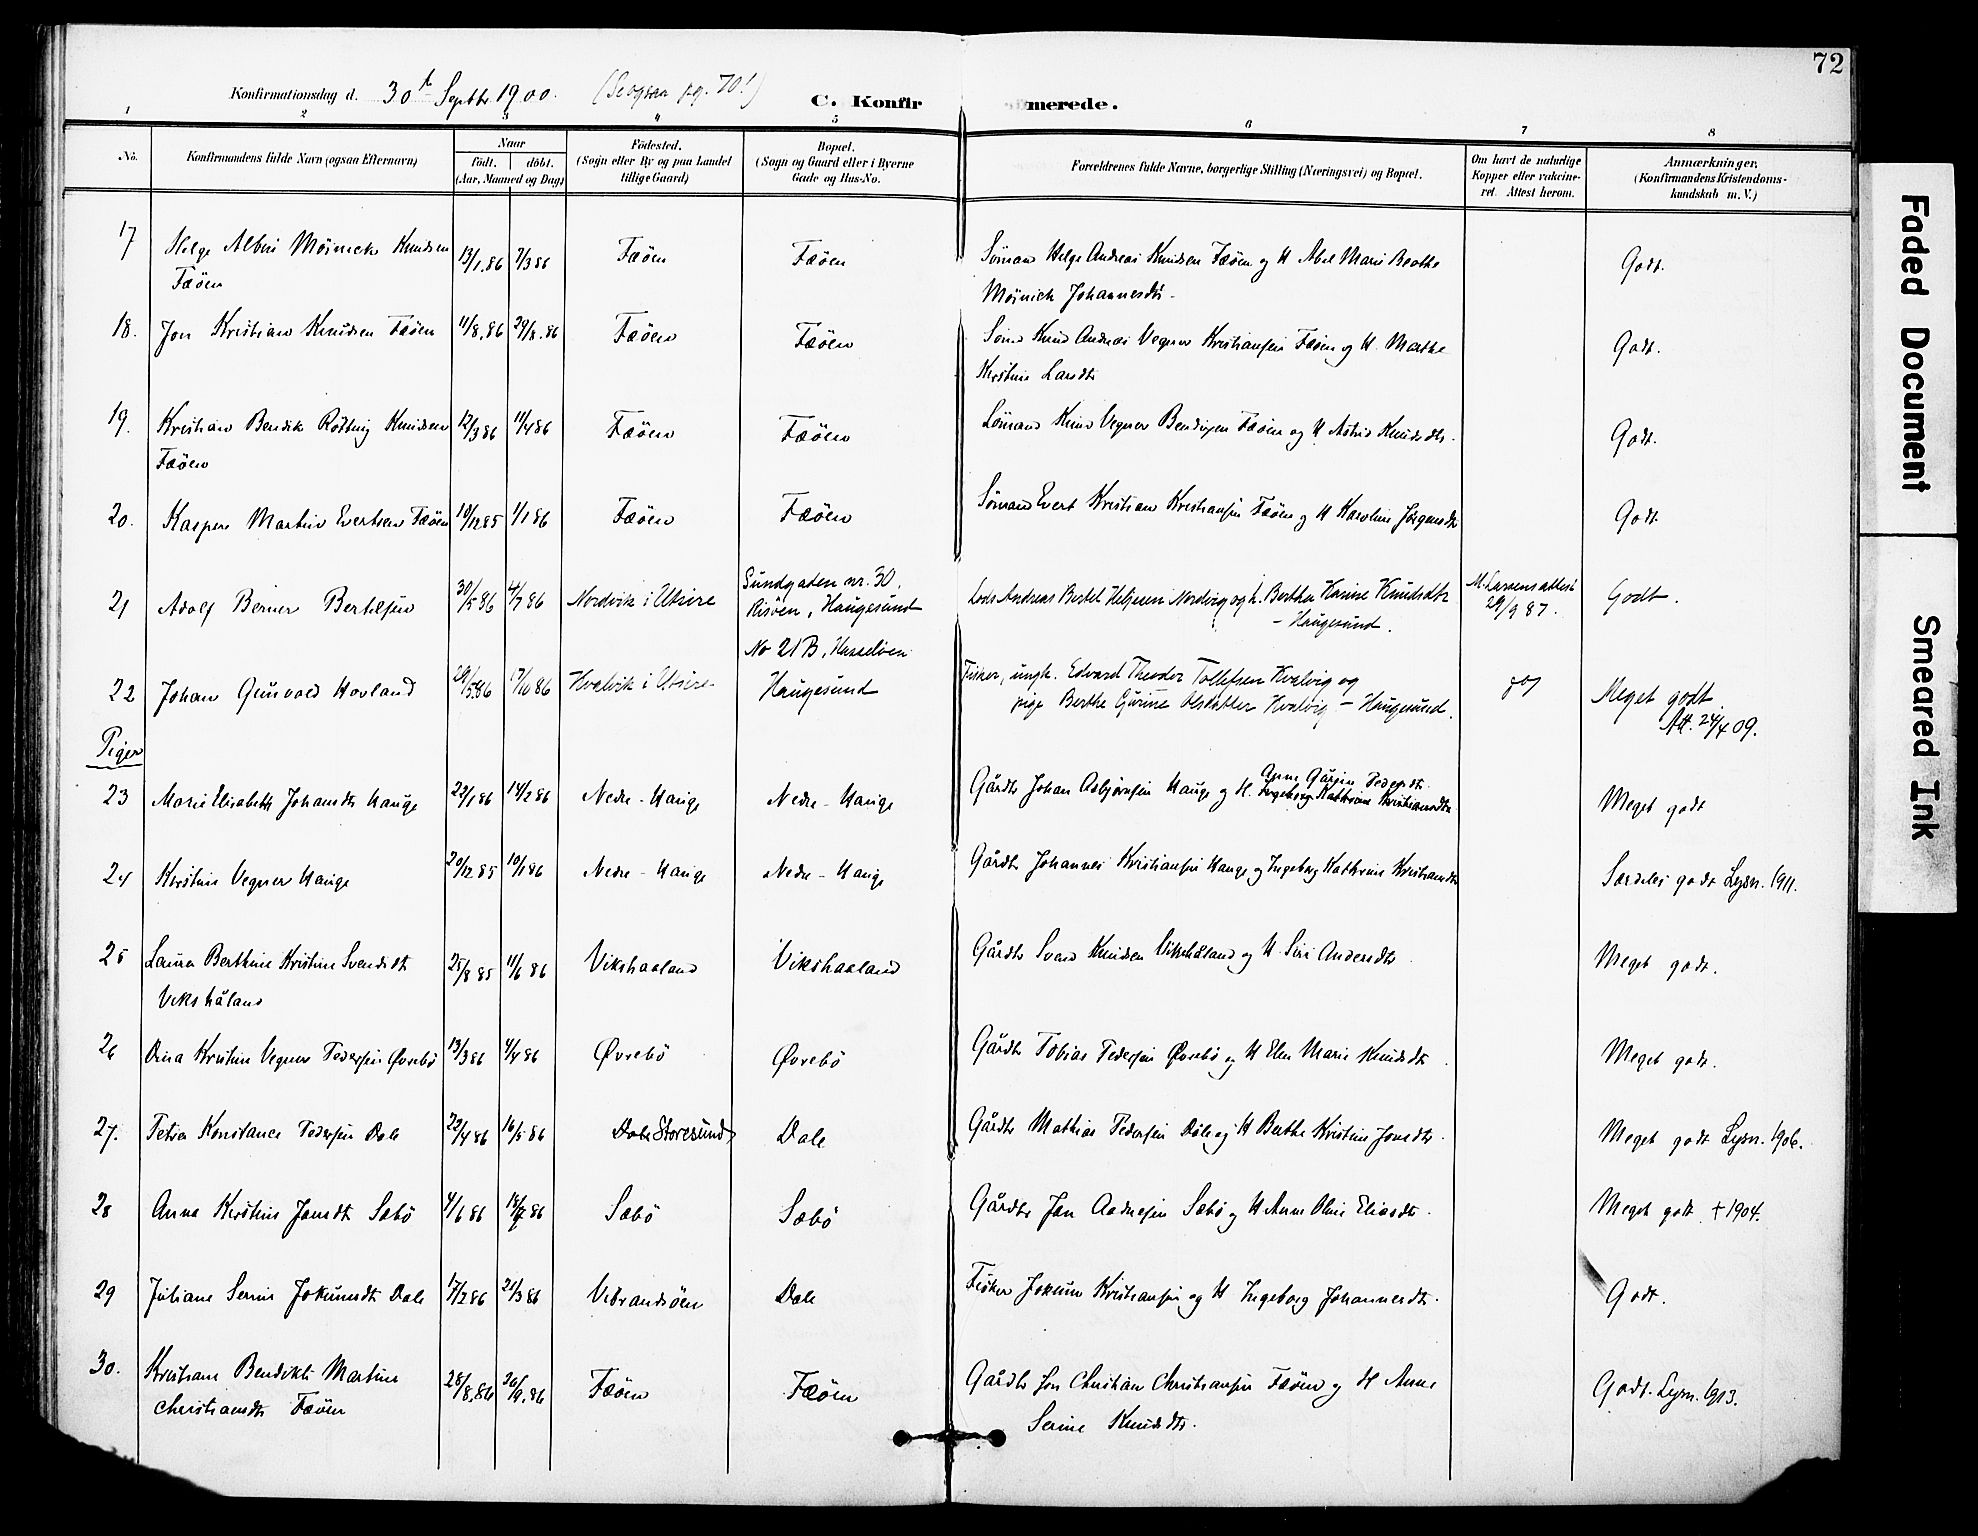 72
Konfirmationsdag d. 30te Septbr 1900. (Se ogsaa pg. 70!)
C. Konfirmerede.
1 2 3 4 5 6 7 8
No.
Konfirmandens fulde Navn (ogsaa Efternavn)
Naar
födt. döbt.
(Aar, Maaned og Dag)
Födested.
(Sogn eller By og paa Landet
tillige Gaard)
Bopæl.
(Sogn og Gaard eller i Byerne
Gade og Hus-No.
Forældrenes fulde Navne, borgerlige Stilling (Næringsvei) og Bopæl.
Om havt de naturlige
Kopper eller vakcine-
ret. Attest herom.
Anmærkninger.
(Konfirmandens Kristendoms-
kundskab m. V.)
17 Helge Albin Mönich Knudsen 13/1.86 7/3 86 Fæöen Fæöen Sömand Helge Andreas Knudsen Fæöen og H Abel Marie Beathe Godt.
Fæöen Mönich Johannesdtr.
18. Jon Kristian Knudsen Fæöen 11/8.86 29/8.86 Fæöen Fæöen Sömd Knud Andreas Vegner Kristiansen Fæöen og H. Marthe Godt.
Kristine Larsdtr
19. Kristian Bendik Knudsen 12/3 86 11/4 86 Fæöen Fæöen Sömand Knud Vegner Bendixen Fæöen og H Astrid Knudsdtr. Godt.
Fæöen
20. Kaspar Martin Evertsen Fæöen 10/12 85 1/1 86 Fæöen Fæöen Sömand Evert Kristian Kristiansen Fæöen og H Karoline Jörgensdtr Godt.
21 Adolf Berner Bertelsen 30/5 86 4/7 86 Nordvik i Utsire Sundgaden nr. 30.
Risöen, Haugesund Lods Andreas Bertel Helgesen Nordvig og h. Berthe Karine Knudsdtr M. Larsens attest Godt.
29/9 87.
- Haugesund.
22 Johan Gunvald Hovland 29/5 86 17/10 86 Kvalvik i Utsire No 21 B, Hasselöen
Haugesund Fisker, ungk. Edvard Theodor Tollefsen Kvalvig og Meget godt
pige Berthe Gurine Olsdatter Hvalvig - Haugesund. Att. 24/4 09.
Piger
23 Marie Elisabeth Johansdtr Hauge 22/1 86 14/2 86 Nedre - Hauge Nedre - Hauge Gårdbr Johan Asbjörnsen Hauge og H. Ingeborg Kathrine Kristiansdtr. Meget godt
Anne Gurine Pedersdtr.
24 Kristine Vegner Hauge 20/12 85 10/1 86 Nedre - Hauge Nedre - Hauge Gårdbr Johannes Kristiansen Hauge og Ingeborg Kathrine Kristiansdtr Særdeles godt Lysn. 1911.
25 Laura Berthine Kristine Svendsdtr 25/8 85 11/6 86 Vikshaaland Vikshaaland Gårdbr Svend Knudsen Vikshåland og H. Siri Andersdtr. Meget godt.
Vikshåland
26 Kristine Vegner Pedersen Øvrebö 13/3 86 4/4 86 Øvrebö Øvrebö Gårdbr Tobias Pedersen Øvrebö og H Elen Marie Knudsdtr. Meget godt.
27. Petra Konstance Pedersen Dale 22/4 86 16/5 86 Dale Storesund Dale Gårdbr Mathias Pedersen Dale og H Berthe Kristine Jonsdtr. Meget godt Lysn. 1906.
28 Anna Kristine Jansdtr Sæbö 4/6 86 18/7 86 Sæbö Sæbö Gårdbr Jan Aadnesen Sæbö og H Anne Oline Eliasdtr. Meget godt † 1904.
29 Juliane Serine Jokumsdtr Dale 17/2 86 21/3 86 Vibrandsöen Dale Fisker Jokum Kristiansen og H Ingeborg Johannesdtr. Godt.
30. Kristiane Bendikte Martine 28/8.86 26/9.86 Fæöen Fæöen Gårdbr Jon Christian Christiansen Fæöen og H Anne Godt. Lysn. 1913.
Christiansdtr Fæöen Serine Knudsdtr.
Faded Document
Smeared Ink